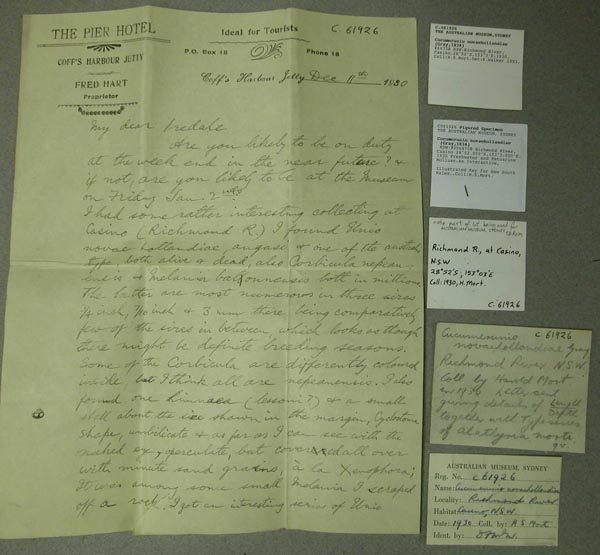 THE PIER HOTEL
COFF'S HARBOUR JETTY
FRED HART
Proprietor
Ideal for Tourists
P.O. Box 18
Phone 18
C. 61926
Coff's Harbour Jetty Dec 11th 1930
My dear Iredale
Are you likely to be on duty
at the week end in the near future? &
if not, are you likely to be at the Museum
on Friday Jan. 2nd?
I had some rather interesting collecting at
Casino (Richmond R.) I found Unio
novae hollandiae, angasi & one of the austral
type, both alive & dead, also Corbicula nepean-
ensis & Melania balonnensis both in millions
The latter are most numerous in three sizes
¼ inch, & 3 mm there being comparatively
few of the sizes in between, which looks as though
there might be definite breeding seasons.
Some of the Corbicula are differently coloured
inside, but I think all are nepeanensis. I also
found one limnaea (lessoni?) & a small
shell about the size shown in the margin, Cyclostoma
shape, umbilicate & as far as I can see with the
naked eye, operculate, but covered all over
with minute sand grains, à la Xenophora;
It was among some small Melania I scraped
off a rock. I got an interesting series of Unio
C.61926
THE AUSTRALIAN MUSEUM, SYDNEY
Cucumerunio novaehollandiae
(Gray, 1834)
C61926 Figured Specimen
THE AUSTRALIAN MUSEUM, SYDNEY
Cucumerunio novaehollandiae
(Gray, 1834)
note part of lot being used for
AUSTRALIAN MUSEUM, SYDNEY
Richmond R., at Casino,
N.S.W.
28°52'S, 153°03'E
Coll: 1930, H. Mort.
C. 61926
Cucumerunio C 61926
novaehollandiae Gray
Richmond River N.S.W.
Coll by Harold Mort
Letter sent
giving details of length
depth
together with Type series
of Alathyria
q.v.
AUSTRALIAN MUSEUM, SYDNEY
Reg. No. c61926
Name: Cucumerunio novaehollandiae
Locality: Richmond River
Habitat: Casino, N.S.W.
Date: 1930 Coll. by: H S Mort
Ident. by: